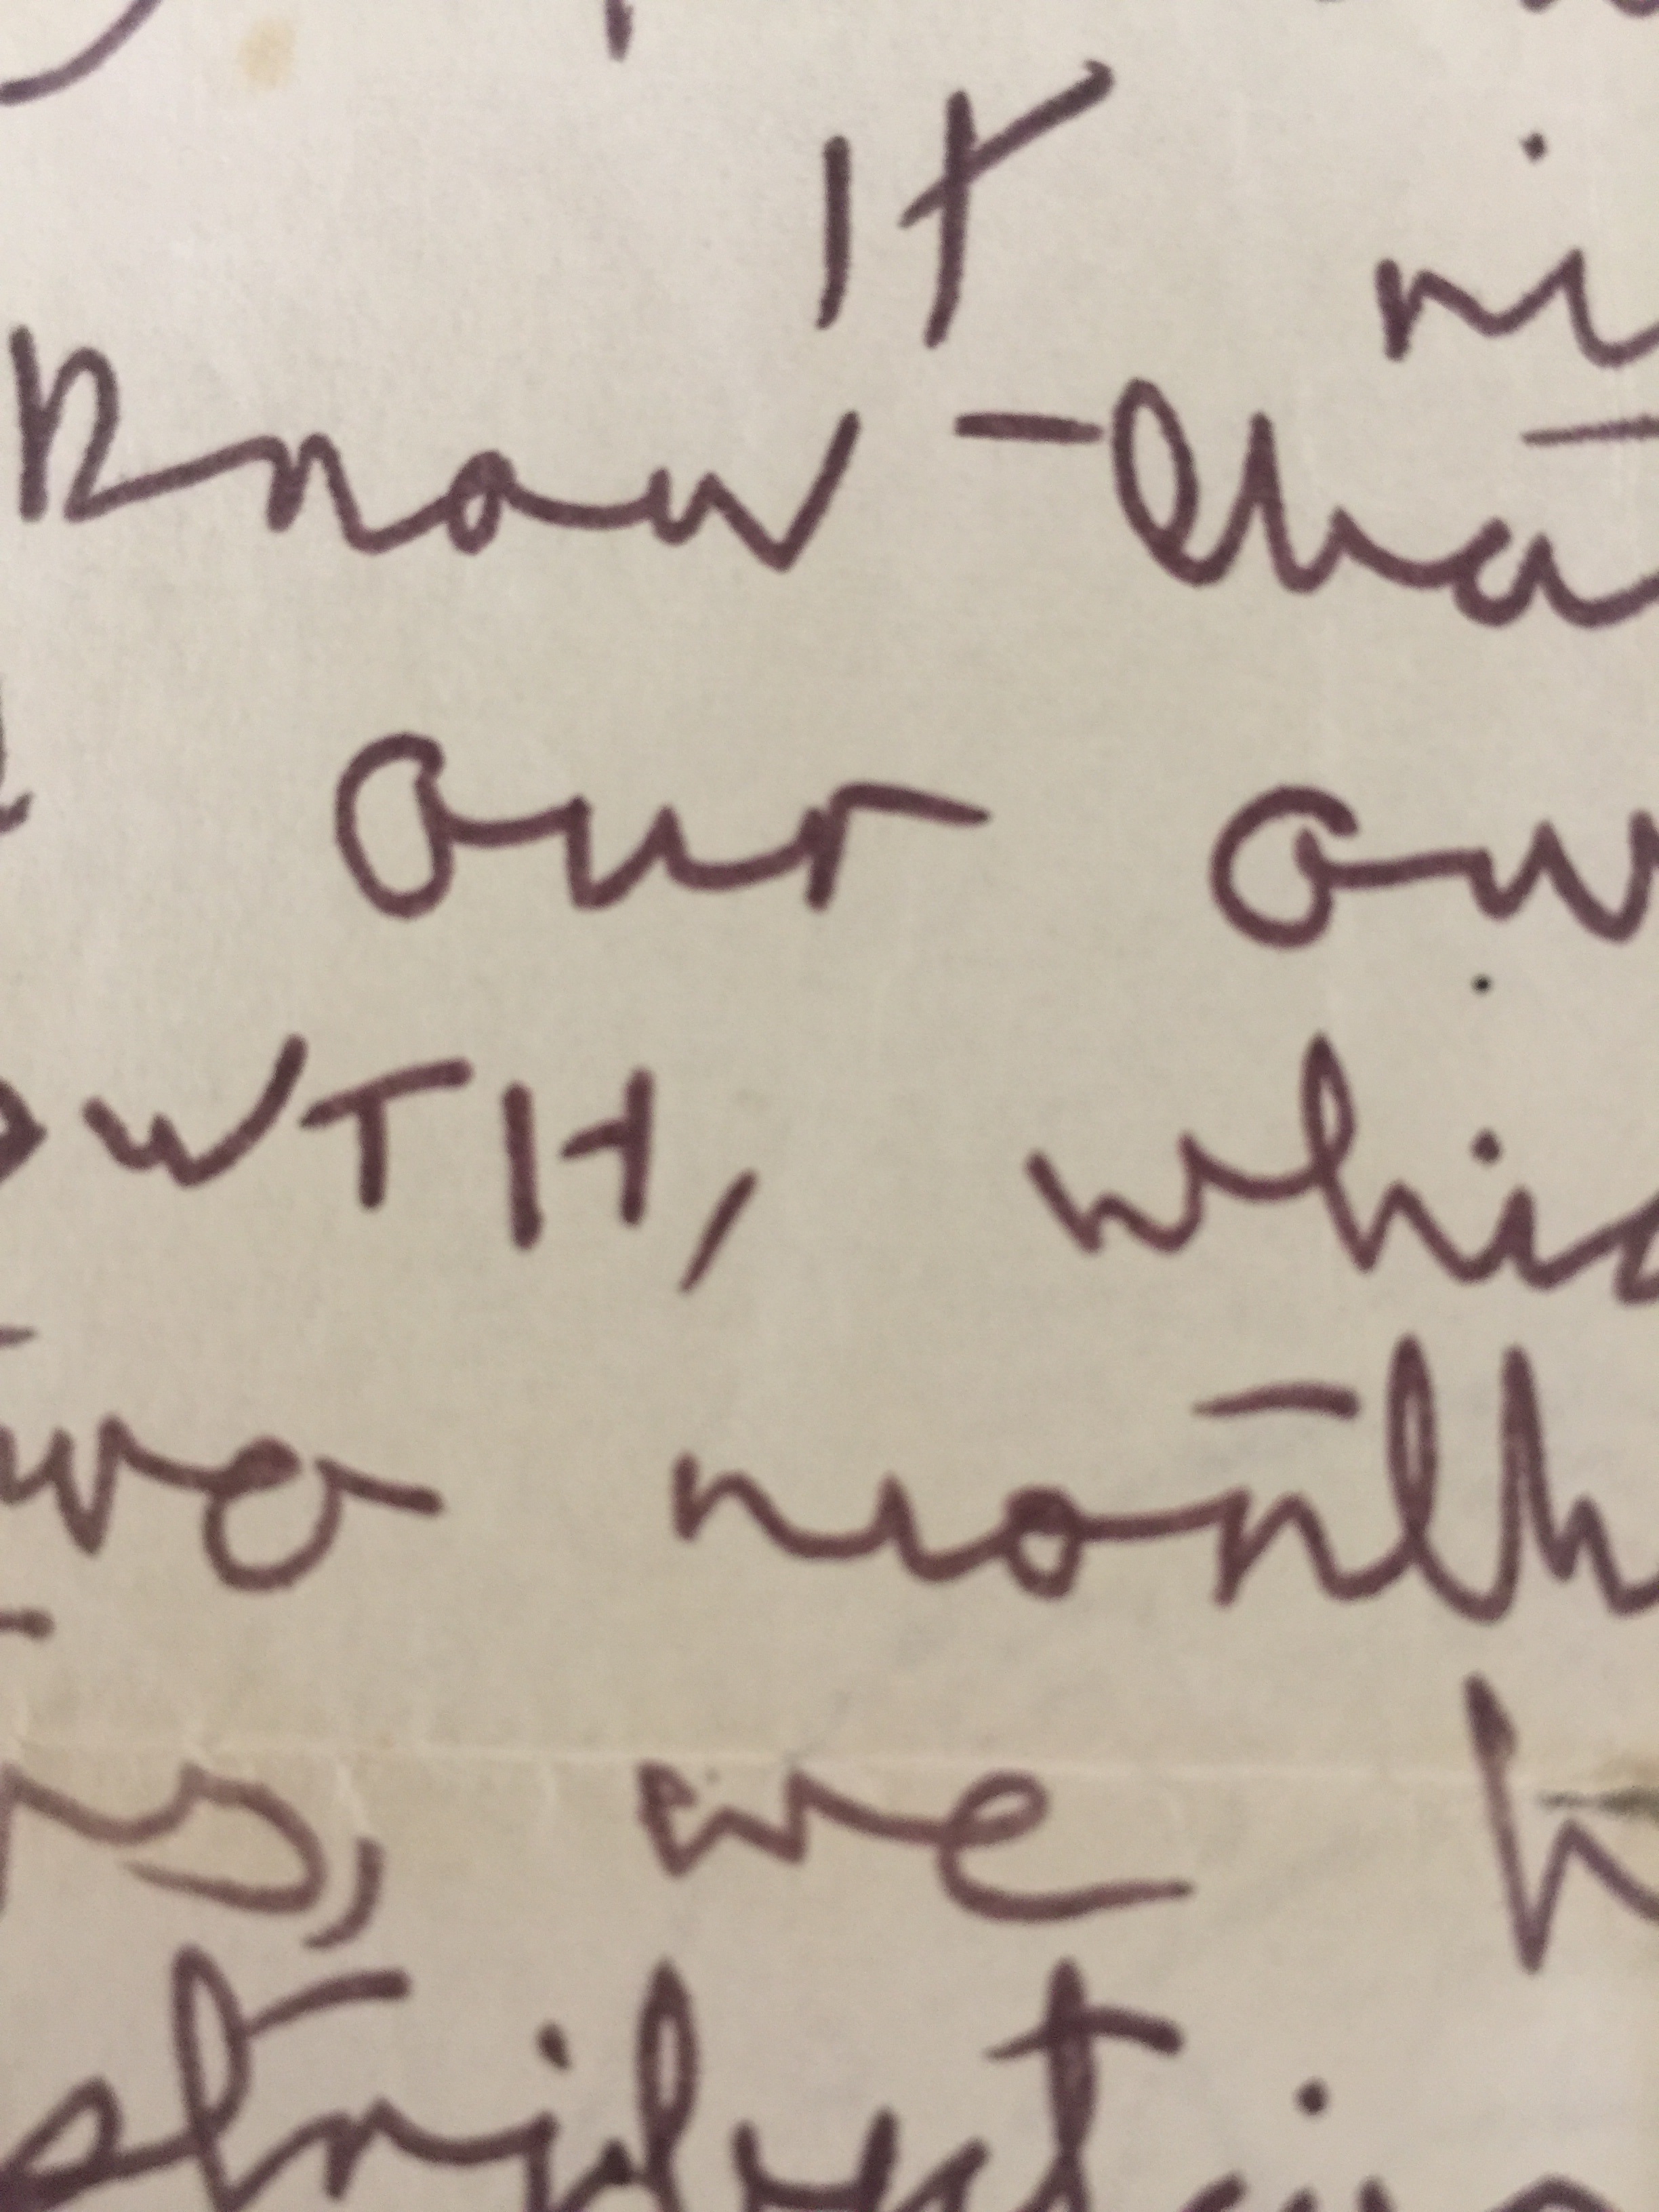 It mi
know tha
our ow
owTH, whic
two month
rs, we h